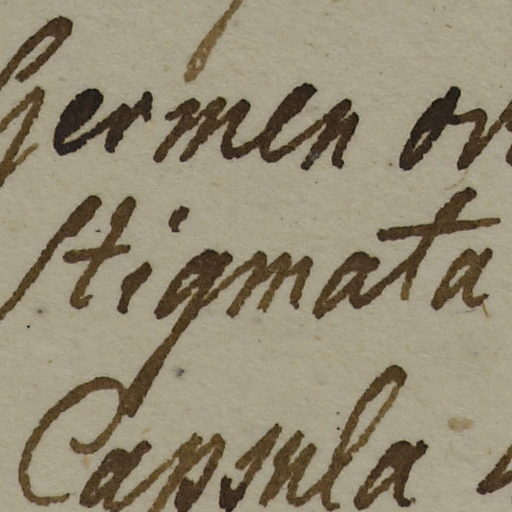 Germen
Stigmata
Capsula